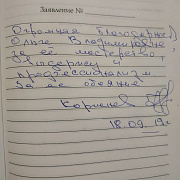 Заявление №
Огромная благодарность
Ольге Владимировне
за её мастерство,
выдержку и
профессионализм.
За её обаяние!
Корнилов
18.09.19г.